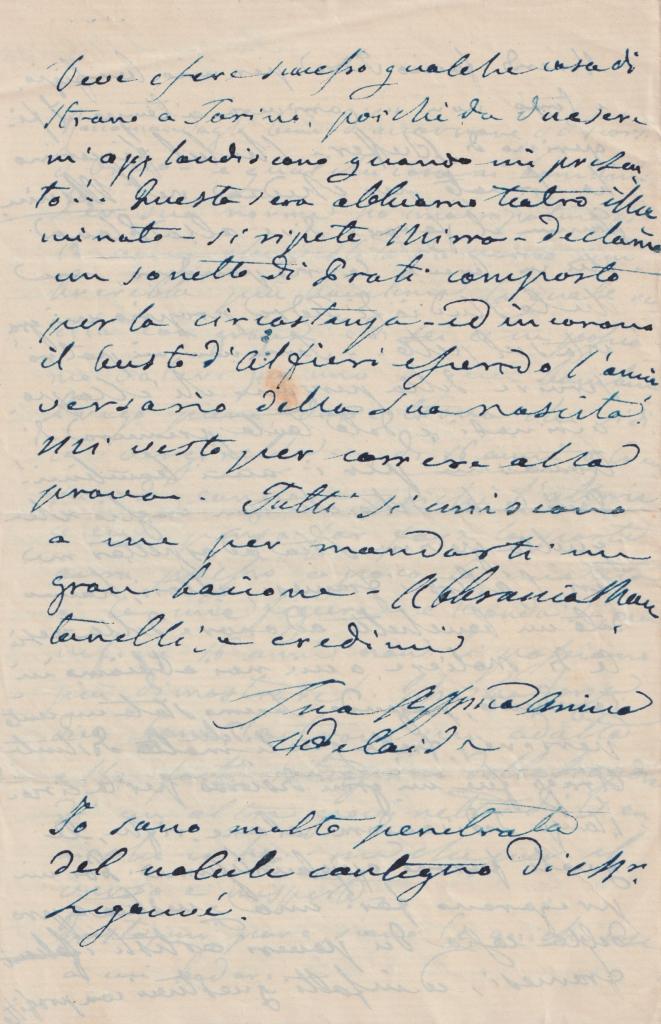 Deve essere successo qualche cosa di
strano a Torino, poiché da due sere
m'applaudiscono quando mi presen
to!... Questa sera abbiamo teatro illu
minato - si ripete Mirra - declamo
un sonetto di Prati composto
per la circostanza - ed incorono
il busto d'Alfieri essendo l'anni
versario della sua nascita.
Mi vesto per correre alla
prova. Tutti si uniscono
a me per mandarti un
gran bacione - Abbraccia Mon
tanelli, e credimi
Tua Affma Amica
Adelaide
Io sono molto penetrata
del nobile contegno di Mr.
Legouvé.